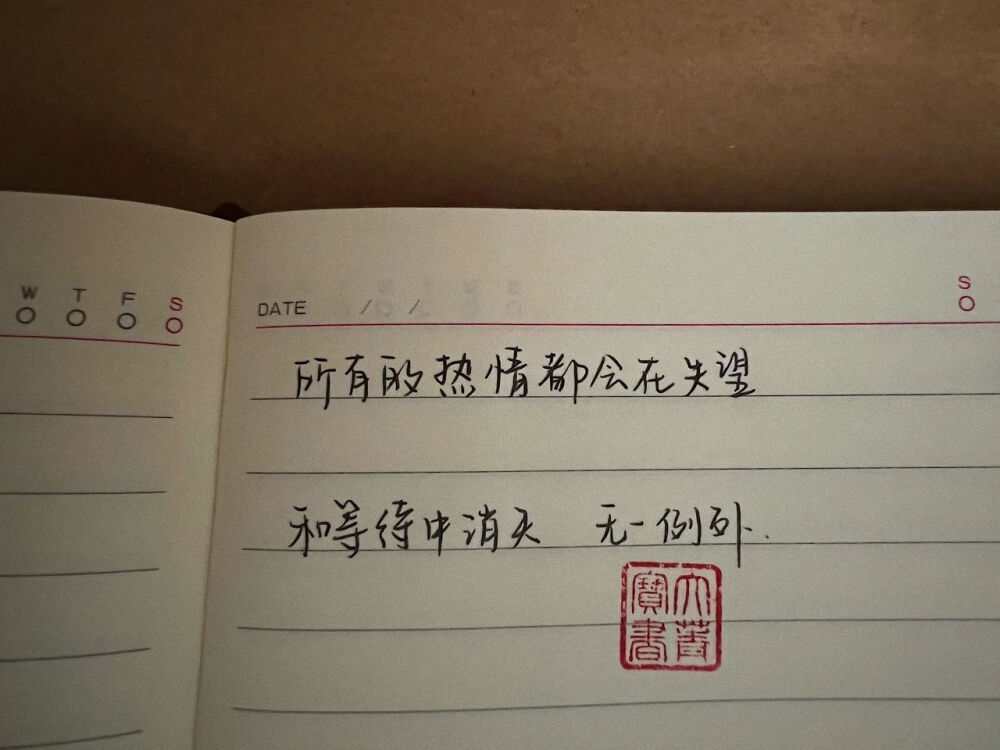 W T F S
DATE / /
S
所有的热情都会在失望
和等待中消失 无一例外.